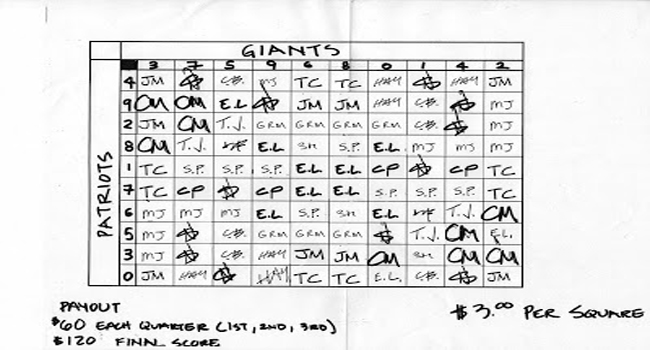 GIANTS
3 7 5 9 6 8 0 1 4 2
PATRIOTS
4 JM C.B. MJ TC TC HAY HAY JM
9 CM CM E.L JM JM HAY C.B. MJ
2 JM CM T.J. GRM GRM GRM GRM C.B. MJ
8 CM T.J. E.L SH S.P. E.L MJ MJ MJ
1 TC S.P. S.P. S.P. E.L E.L CP CP TC
7 TC CP CP E.L E.L S.P. S.P. S.P. TC
6 MJ MJ MJ E.L S.P. SH E.L T.J. CM
5 MJ C.B. GRM GRM GRM T.J. CM E.L.
3 MJ C.B. HAY JM JM CM SH CM CM
0 JM HAY HAY TC TC E.L. C.B. JM
PAYOUT
$60 EACH QUARTER (1ST, 2ND, 3RD)
$120 FINAL SCORE
$3.00 PER SQUARE